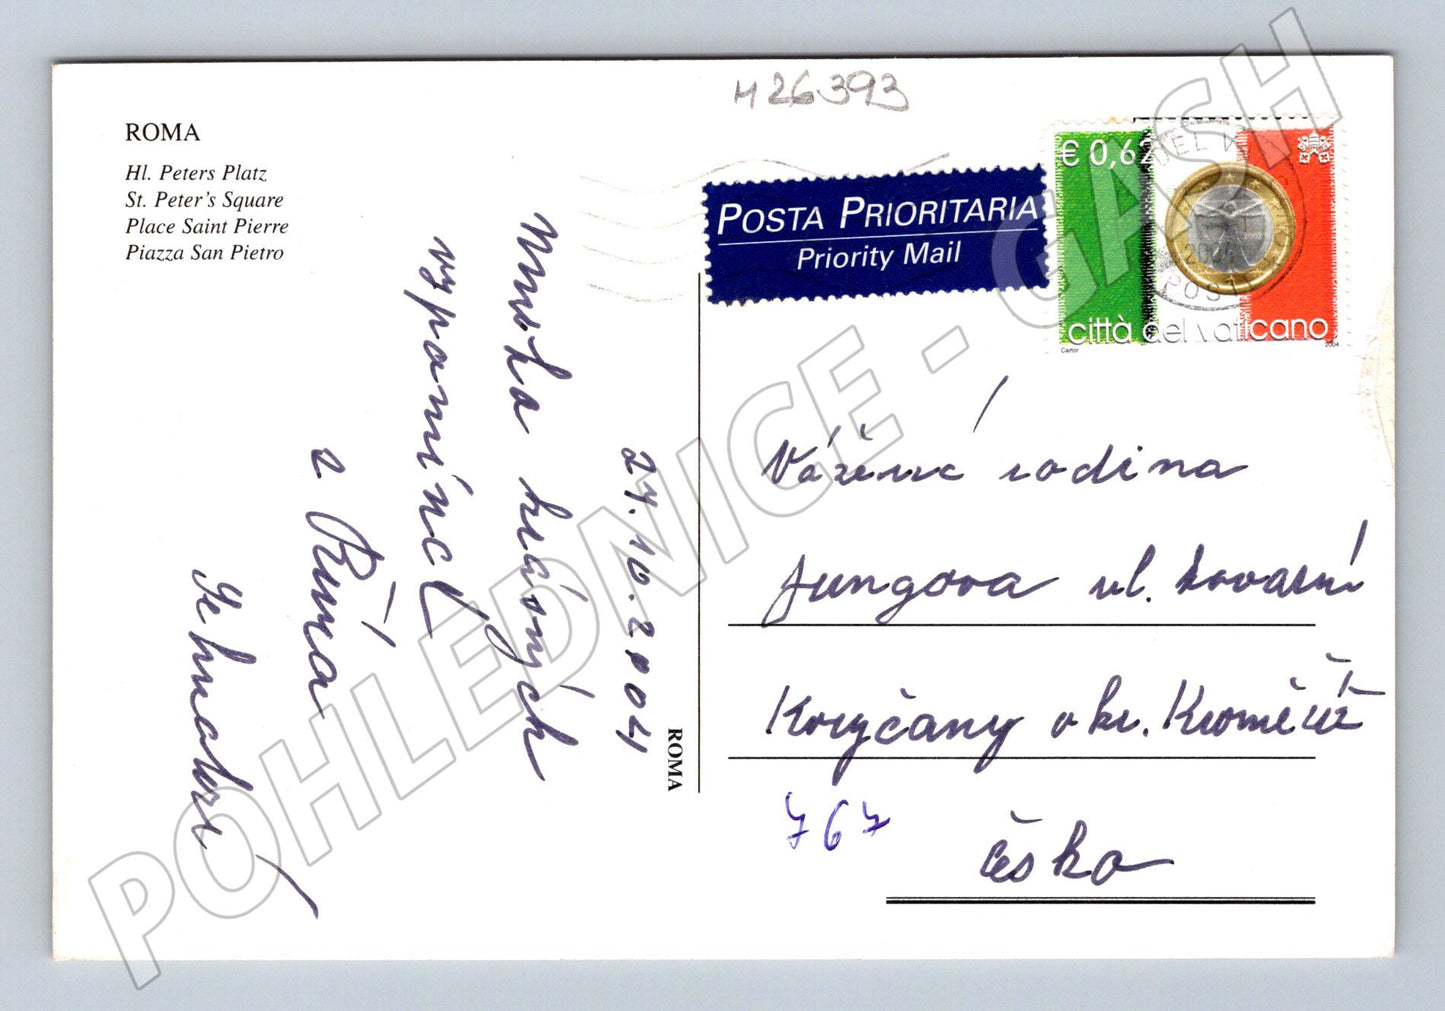 H 26393
ROMA
Hl. Peters Platz
St. Peter's Square
Place Saint Pierre
Piazza San Pietro
POSTA PRIORITARIA
Priority Mail
€ 0,62
POSTE
città del Vaticano
Cartor
2004
24.10.2004
Mnoho krásných
vzpomínek
z Říma
ROMA
Vážená rodina
Jungova ul. Kovarní
Koryčany okr. Kroměříž
767
Česko
POHLEDNICE - GASH